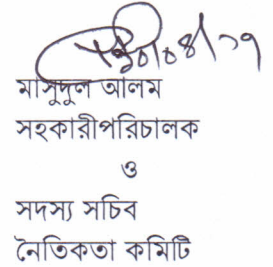 মাসুদুল আলম
সহকারীপরিচালক
ও
সদস্য সচিব
নৈতিকতা কমিটি